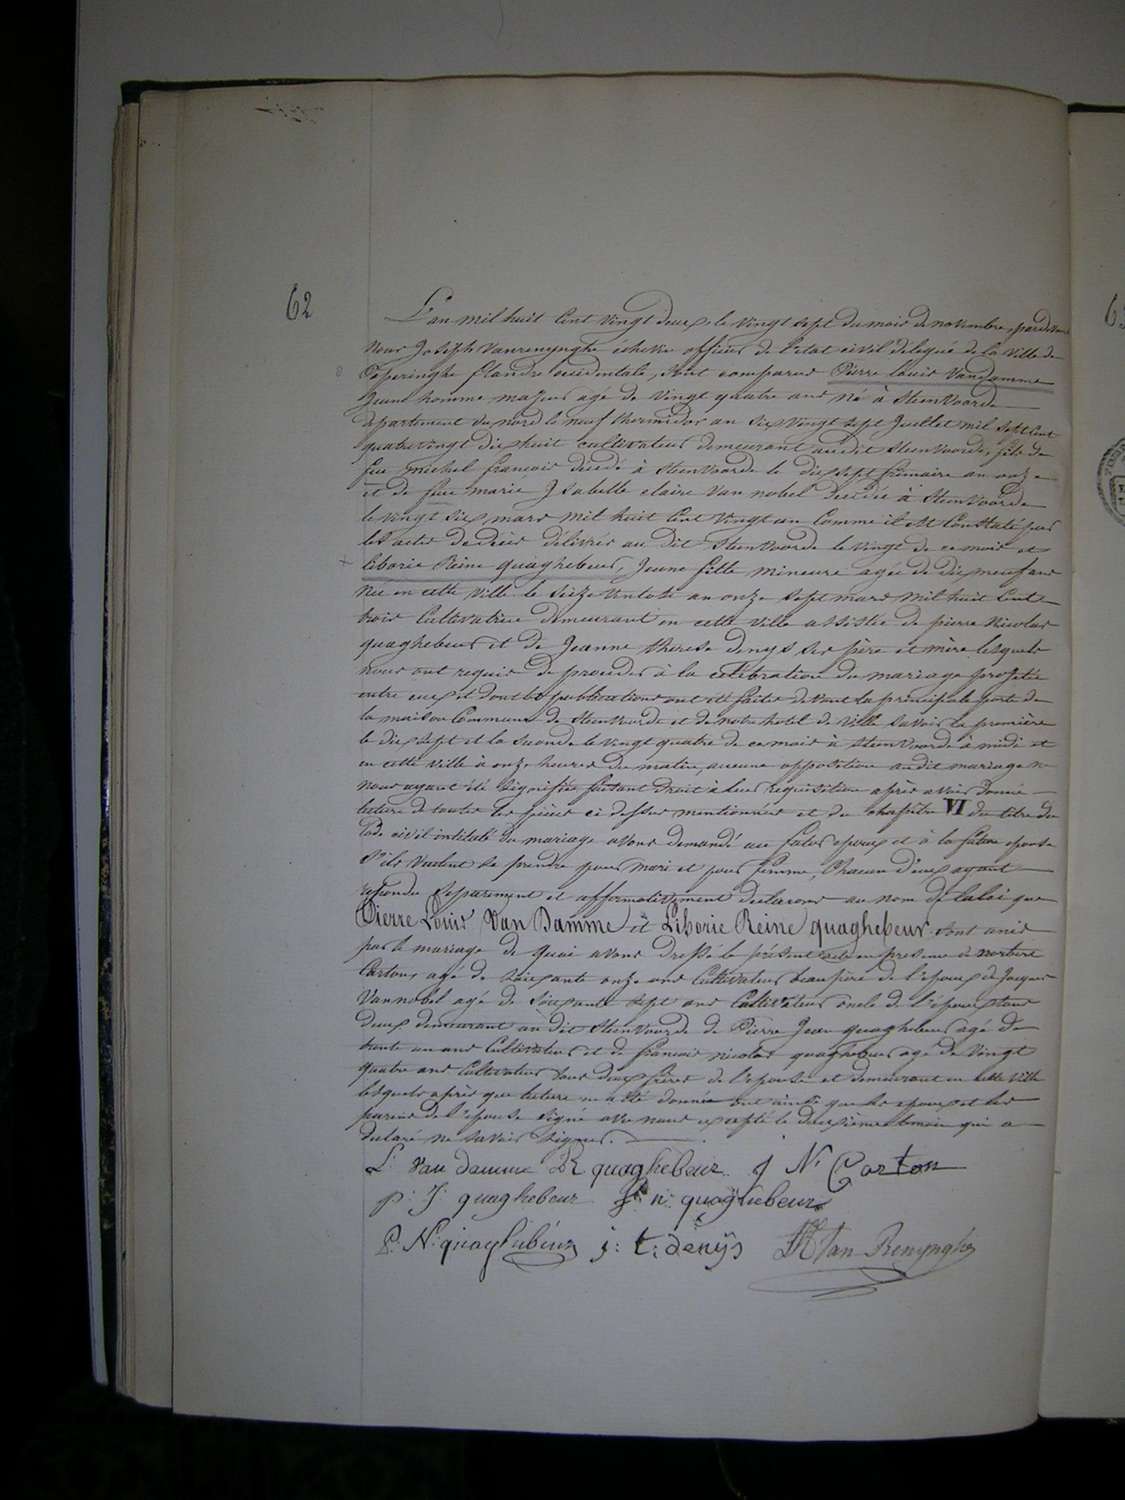 62
L'an mil huit Cent Vingt deux, le Vingt sept du mois de novembre, pardevant
nous Joseph Vanrenynghe échevin officier de l'état civil délégué de la Ville de
Poperinghe flandre occidentale, sont comparus Pierre Louis Vandamme
jeune homme majeur agé de Vingt quatre ans né à Steenvoorde
département du nord le neuf thermidor an six Vingt sept Juillet mil sept Cent
quatrevingt dix huit cultivateur demeurant audit Steenvoorde, fils de
feu michel françois décédé à Steenvoorde le dix sept frimaire an onze
et de feue marie Isabelle claire Van nobel décédée à Steenvoorde
le vingt six mars mil huit Cent Vingt un Comme il est Constaté par
les actes de décès délivrés au dit Steenvoorde le Vingt de ce mois et
liborie Reine quaghebeur, Jeune fille mineure agée de dix neuf ans
née en cette Ville le Seize Ventose an onze Sept mars mil huit Cent
trois Cultivatrice demeurant en cette Ville assistée de pierre Nicolas
quaghebeur et de Jeanne therese denys ses père et mère lesquels
nous ont requis de procéder à la célébration du mariage projetté
entre eux et dont les publications ont été faites devant la principale porte de
la maison Commune de Steenvoorde et de notre hotel de Ville savoir la première
le dix sept et la seconde le vingt quatre de ce mois à Steenvoorde à midi et
en cette Ville à onze heures du matin, aucune opposition audit mariage ne
nous ayant été signifiée faisant droit à leur requisition après avoir donné
lecture de toutes les pièces ci dessus mentionnées et du chapitre VI du titre du
Code civil intitulé du mariage avons demandé au futur epoux et à la future epouse
s'ils veulent se prendre pour mari et pour femme Chacun d'eux ayant
répondu séparement et affirmativement declarons au nom de la loi que
Pierre Louis Van Damme et Liborie Reine quaghebeur sont unis
par le mariage de quoi avons dressé le présent acte en presence de norbert
Carton, agé de soixante onze ans Cultivateur beaupère de l'epoux de Jacques
Vannobel agé de Soixante sept ans Cultivateur oncle de l'epoux tous
deux demeurant au dit Steenvoorde de Pierre Jean quaghebeur agé de
trente un ans Cultivateur et de francois nicolas quaghebeur agé de Vingt
quatre ans Cultivateur tous deux frères de l'epouse et demeurant en cette Ville
lesquels après que lecture en a été donnée ont ainsi que les epoux et les
parens de l'epouse signé avec nous excepté le deuxième temoin qui a
declaré ne savoir signer.
L: Van damme R quaghebeur N. Carton
p: J: quaghebeur f: n: quaghebeur
P: N: quaghebeur j: t: denÿs Van Renynghe